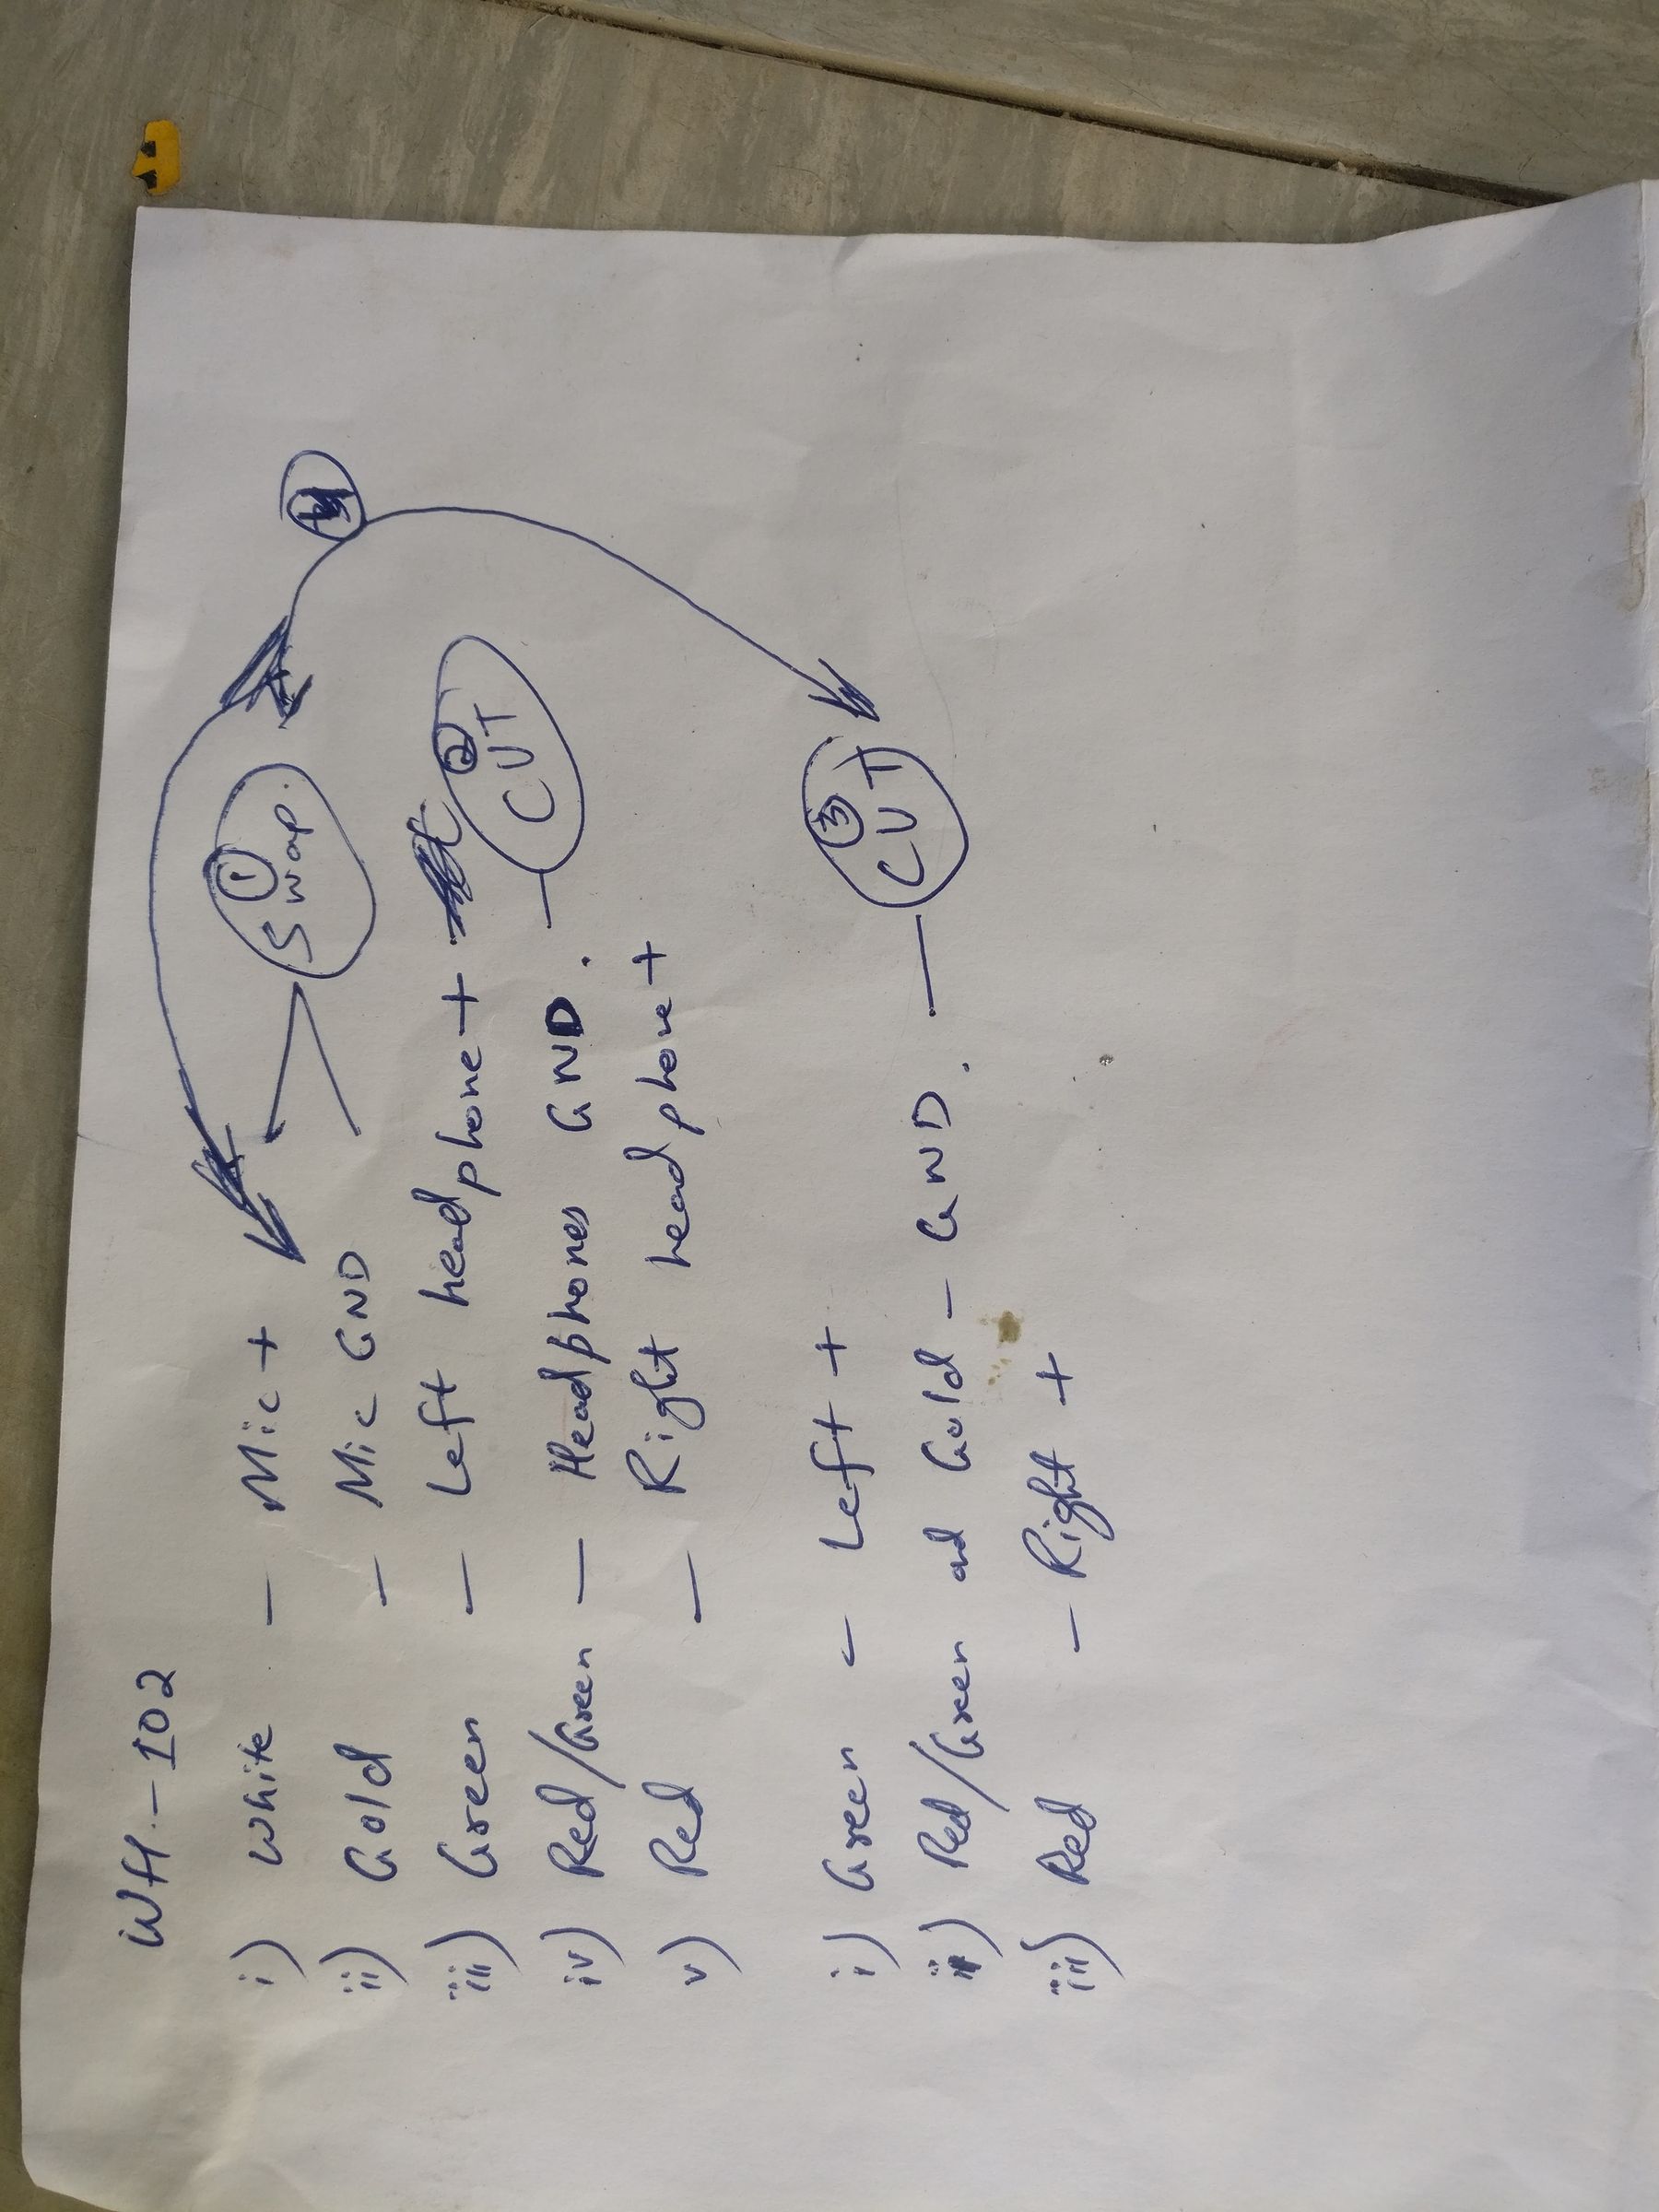 WH-102
i) White - Mic +
ii) Gold - Mic GND
① Swap.
iii) Green - Left headphone +
iv) Red/Green - Headphones GND. - ② CUT
v) Red - Right headphone +
i) Green - Left +
ii) Red/Green and Gold - GND. - ③ CUT
iii) Red - Right +